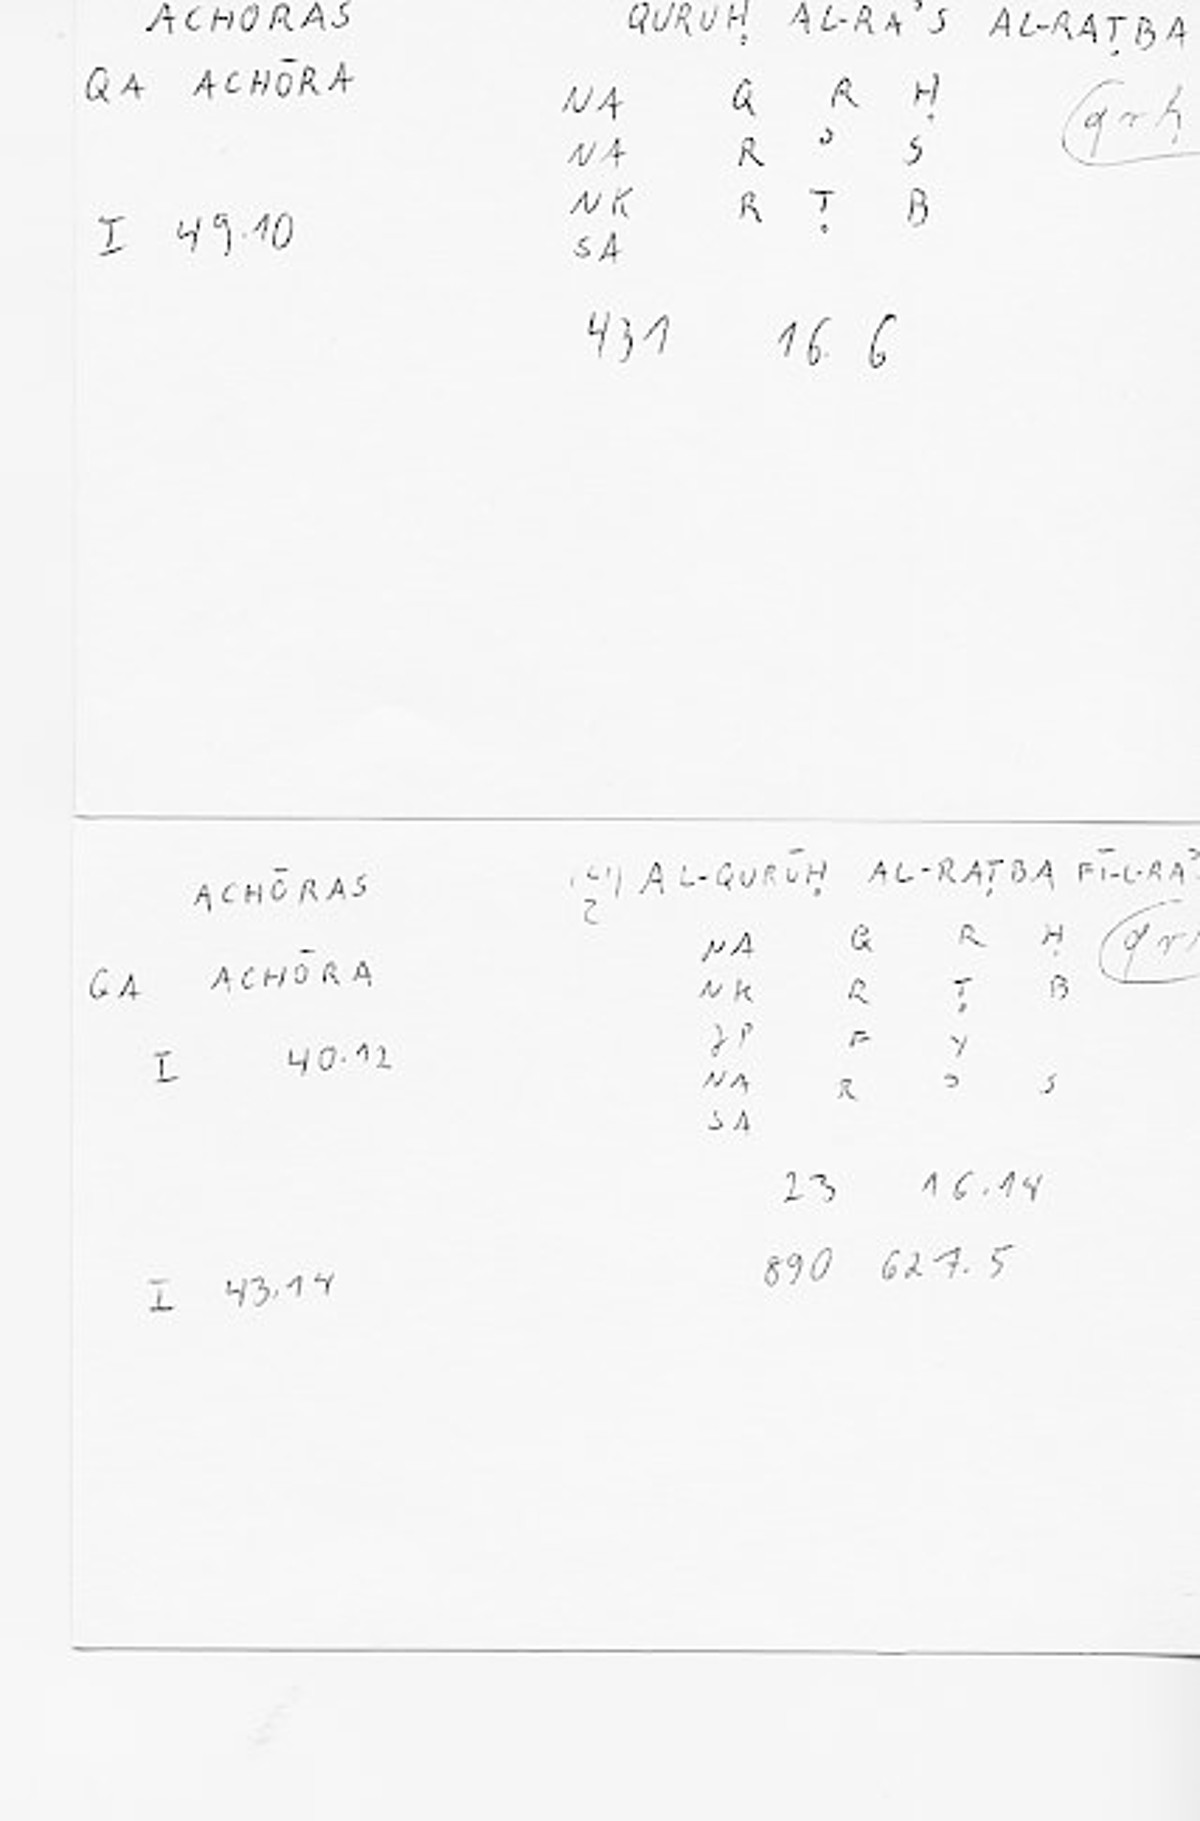 ACHORAS QURUḤ AL-RAʾS AL-RAṬBA
QA ACHŌRA
NA Q R Ḥ (qrḥ
NA R ʾ S
I 49.10 NK R Ṭ B
SA
431 16. 6
ACHŌRAS AL-QURŪḤ AL-RAṬBA FĪ-L-RAʾ
NA Q R Ḥ
GA ACHŌRA NK R Ṭ B
F Y
I 40.12 NA R ʾ S
SA
23 16.14
I 43.14 890 627.5